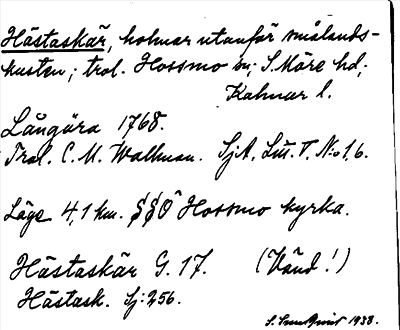 Hästaskär, holmar utanför smålands-
kusten; trol. Hossmo sn; S. Möre hd;
Kalmar l.
Långöra 1768.
Trol. C. M. Wallman. SjA. Lit. T. No 1, b.
Läge 4,1 km. SSO Hossmo kyrka.
Hästaskär G. 17. (Vänd!)
Hästask. Sj: 256.
1938.